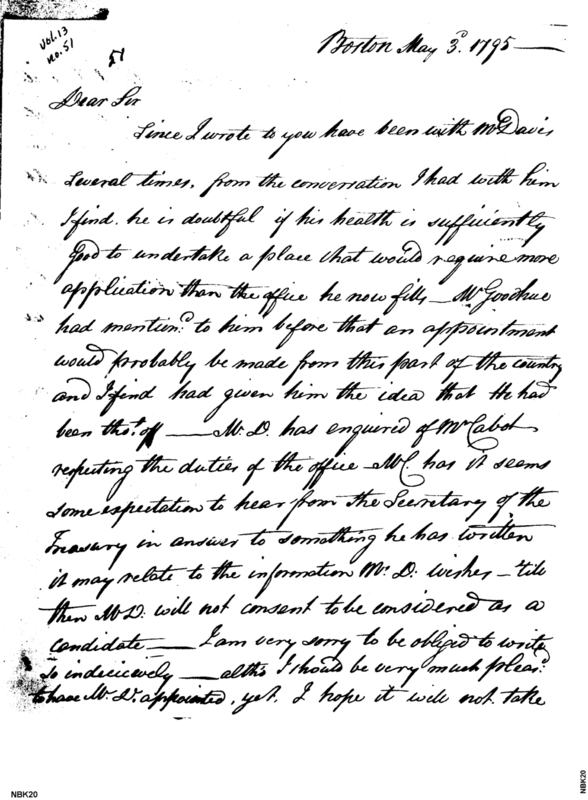 Vol. 13
no. 51
51
Boston May 3d. 1795 —
Dear Sir
Since I wrote to you have been with Mr Davis
several times, from the conversation I had with him
I find he is doubtful if his health is sufficiently
good to undertake a place that would require more
application than the office he now fills — Mr. Goodhue
had mention'd to him before that an appointment
would probably be made from this part of the country
and I find had given him the idea that He had
been tho't of — Mr. D. has enquired of Mr Cabot
respecting the duties of the office — Mr C. has it seems
some expectation to hear from the Secretary of the
Treasury in answer to something he has written
it may relate to the information Mr. D. wishes — 'till
then Mr D. will not consent to be considered as a
candidate — I am very sorry to be obliged to write
so indecicevely — altho I should be very much pleas'd
to have Mr. D. appointed, yet, I hope it will not take
NBK20
NBK20